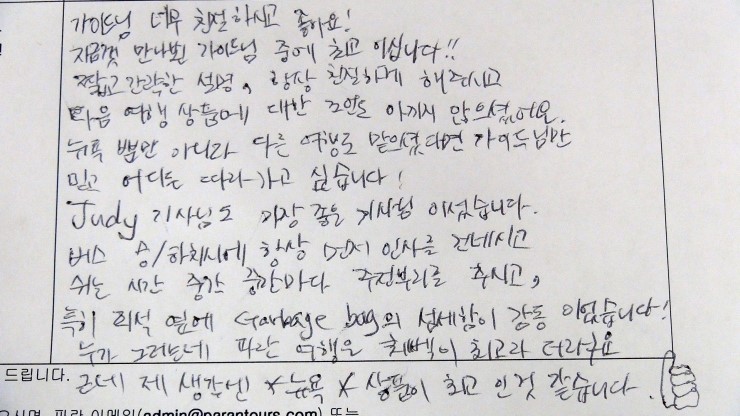 가이드님 너무 친절하시고 좋아요!
지금껏 만나뵌 가이드님 중에 최고 이십니다!!
짧고 간략한 설명, 항상 친절하게 해주시고
다음 여행 상품에 대한 조언도 아끼시 않으셨어요.
뉴욕 뿐만 아니라 다른 여행도 맡으셨다면 가이드님만
믿고 어디든 따라가고 싶습니다!
Judy 기사님도 가장 좋은 기사님 이셨습니다.
버스 승/하차시에 항상 먼저 인사를 건네시고
쉬는 시간 중간 중간마다 주전부리를 주시고,
특히 좌석 옆에 Garbage bag의 섬세함이 감동 이었습니다!
누가 그러는데 파란 여행은 최고라 더라구요
드립니다. 근데 제 생각엔 *뉴욕* 상품이 최고 인것 같습니다.
파란 이메일(admin@parantours.com) 또는